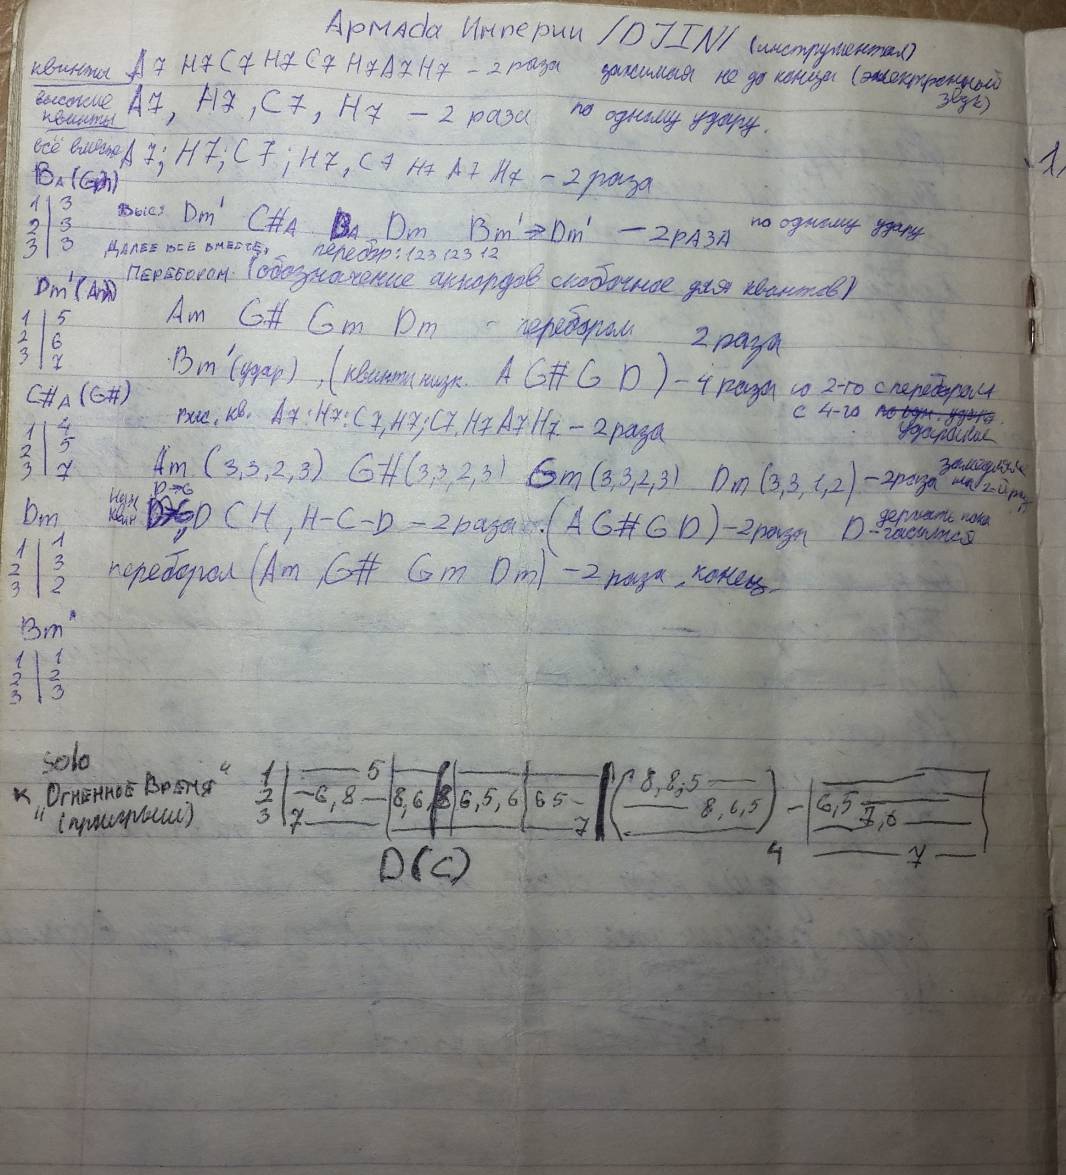 Армада Империи /DJIN/ (инструментал)
квинты A7 H7 C7 H7 C7 H7 A7 H7 – 2 раза зажимая не до конца (электронный звук)
высокие квинты A7, H7, C7, H7 – 2 раза по одному удару.
всё вместе A7; H7; C7; H7, C7 H7 A7 H7 – 2 раза
BA (Gm)
1 | 3
2 | 3
3 | 3
Выс: Dm' C#A BA Dm Bm' → Dm' – 2 РАЗА по одному удару
ДАЛЕЕ ВСЁ ВМЕСТЕ, перебор: 123 123 12
ПЕРЕБОРОМ (обозначение аккордов скобочное для квинтов)
Dm' (Am)
1 | 5
2 | 6
3 | 7
Am G# Gm Dm – перебором 2 раза
Bm' (удар), (квинты низк. A G# G D) – 4 раза со 2-го с перебором
с 4-го ударами
C#A (G#)
1 | 4
2 | 5
3 | 7
выс. кв. A7; H7; C7, H7; C7, H7 A7 H7 – 2 раза
Am (3,3,2,3) G# (3,3,2,3) Gm (3,3,2,3) Dm (3,3,1,2) – 2 раза замедляя на 2-й раз
D→G
Dm
1 | 1
2 | 3
3 | 2
низ квин D C H, H-C-D – 2 раза (A G# G D) – 2 раза D – держать пока гасится
перебором (Am, G# Gm Dm) – 2 раза, конец.
Bm"
1 | 1
2 | 2
3 | 3
Solo
к "Огненное Время"
(проигрыш)
1 | 5
2 | 6, 8 | 8, 6, 8 | 6, 5, 6 | 6 5 | ( 8, 8, 5 8, 6, 5 ) – | 6, 5 7, 6
3 | 7 7 4 7
D (C)
1,